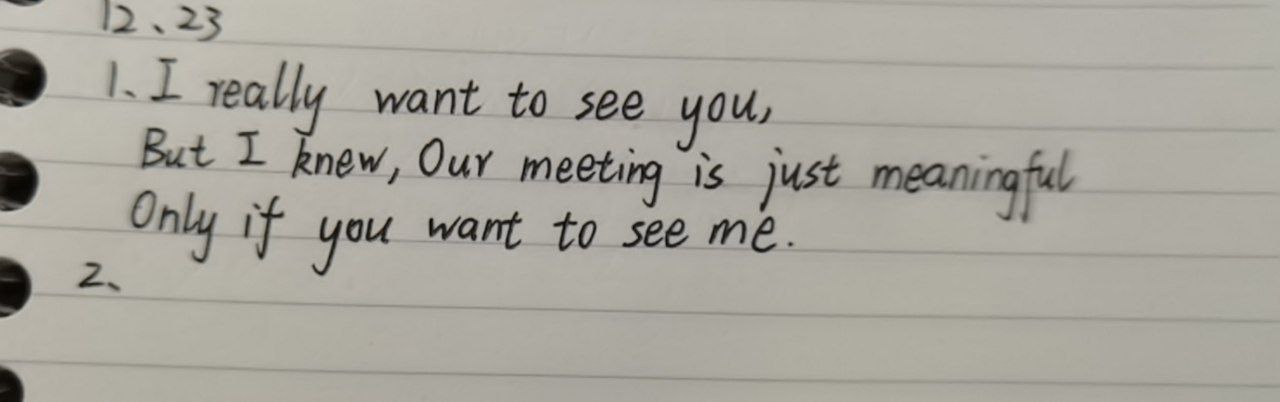 12、23
1、I really want to see you,
But I knew, Our meeting is just meaningful
Only if you want to see me.
2、